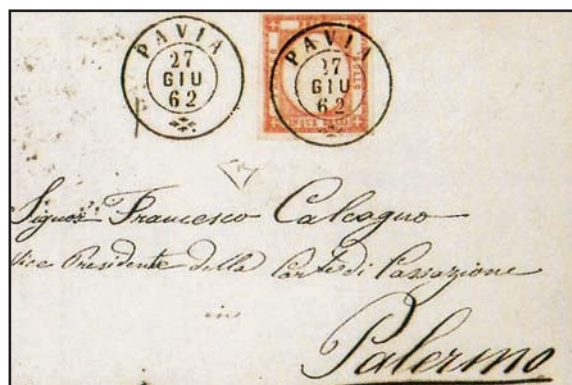 PAVIA
27
GIU
62
PAVIA
27
GIU
62
BOLLO
Signor Francesco Calcagno
Vice Presidente della Corte di Cassazione
in
Palermo